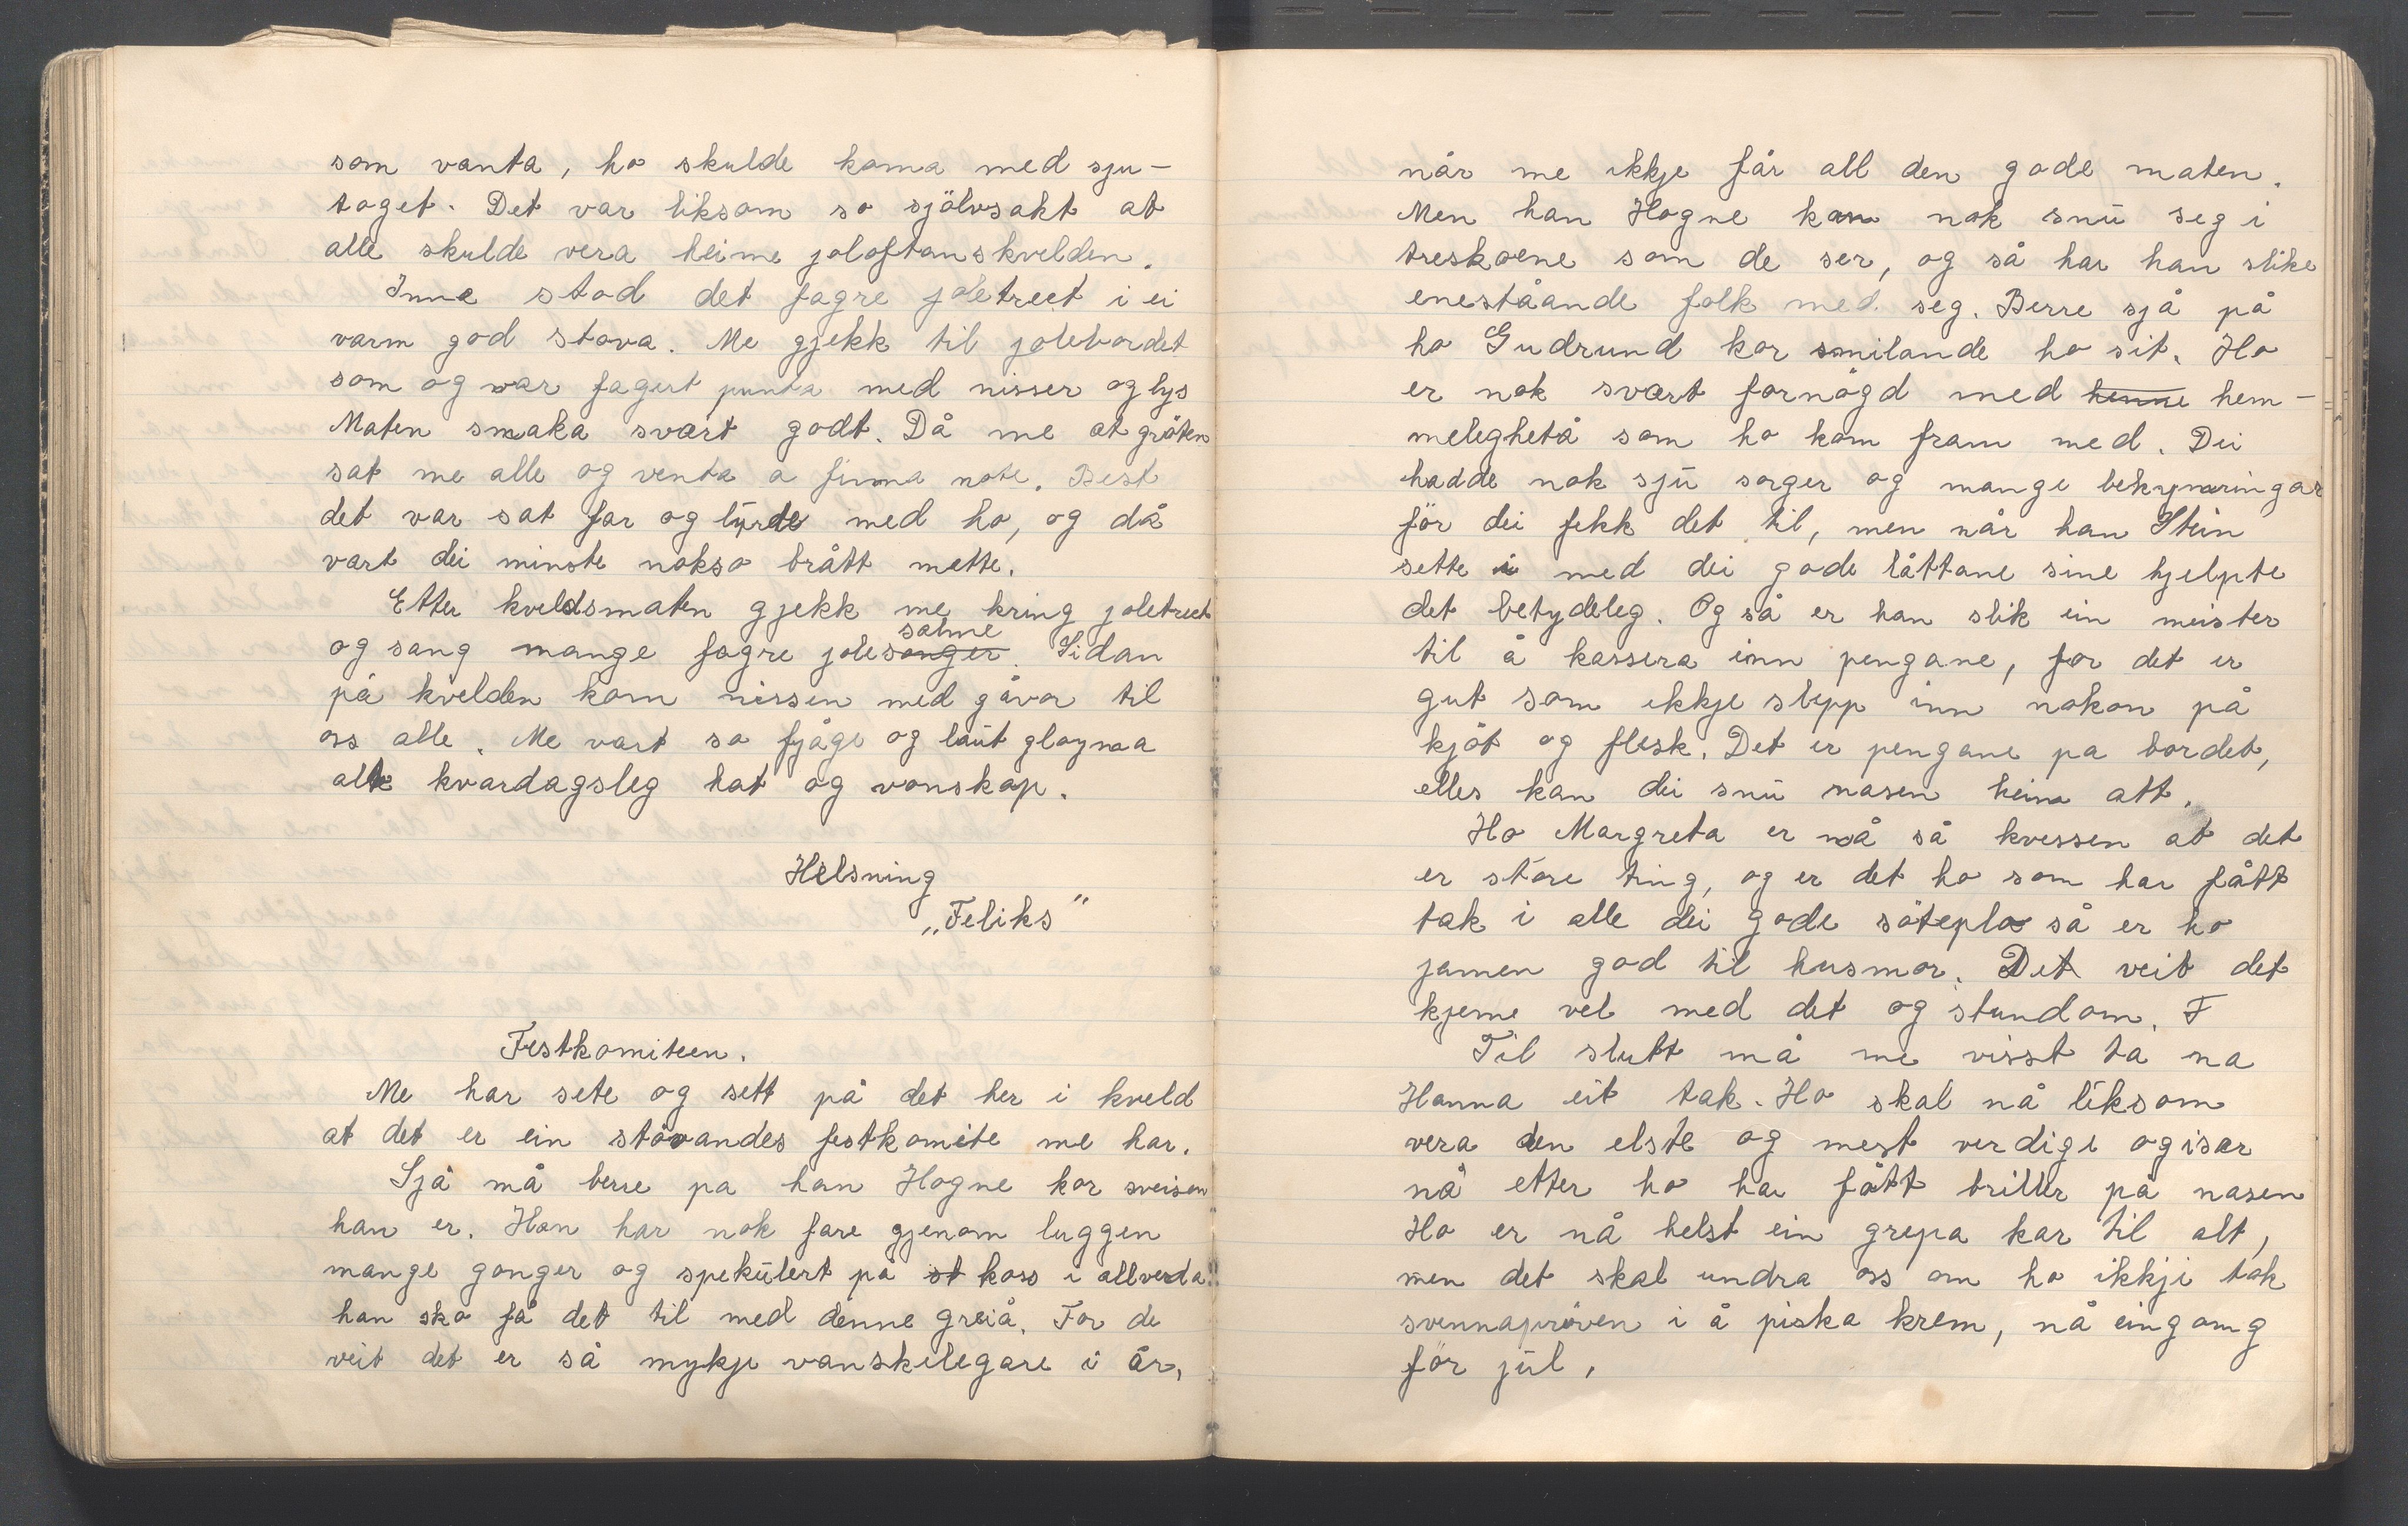 som vanta, ho skulde koma med sju-
toget. Det var liksom so sjölvsakt at
alle skulde vera heime joloftanskvelden.
Inne stod det fagre joletreet i ei
varm god stova. Me gjekk til jolebordet
som og var fagert punta med nisser og lys
Maten smaka svært godt. Då me åt gröten
sat me alle og venta a finna note. Best
det var sat far og lyrde med ho, og då
vart dei minste nokso brått mette.
Etter kveldsmaten gjekk me kring joletreet
og sang mange fagre jolesonger salme. Sidan
på kvelden kom nissen med gåvor til
oss alle. Me vart so fjåge og laut gloyma
alle kvardagsleg hat og vonskap.
Helsning
„Feliks"
Festkomiteen.
Me har sete og sett på det her i kveld
at det er ein stövandes festkomite me har.
Sjå må berre pa han Hogne kor sveisen
han er. Han har nok fare gjenom luggen
mange gonger og spekulert på st koss i allverda
han sko få det til med denne greiå. For de
veit det er så mykje vanskelegare i år,
når me ikkje får all den gode maten.
Men han Hogne kan nok snu seg i
treskoene som de ser, og så har han slike
eneståande folk med seg. Berre sjå på
ho Gudrund kor smilande ho sit. Ho
er nok svært fornögd med henne hem-
meleghetå som ho kom fram med. Dei
hadde nok sju sorger og mange bekymringar
för dei fekk det til, men når han Stein
sette i med dei gode låttane sine hjelpte
det betydeleg. Og så er han slik ein meister
til å kassera inn pengane, for det er
gut som ikkje slepp inn nokon på
kjöt og flesk. Det er pengane pa bordet,
elles kan dei snu nasen heim att.
Ho Margreta er nå så kvessen at det
er store ting, og er det ho som har fått
tak i alle dei gode söteplo så er ho
jamen god til husmor. Det veit det
kjeme vel med det og stundom. F
Til slutt må me visst ta na
Hanna eit tak. Ho skal nå liksom
vera den elste og mest verdige og især
nå etter ho har fått briller på nasen
Ho er nå helst ein grepa kar til alt,
men det skal undra oss om ho ikkje tok
svennapröven i å piska krem, nå eingong
för jul.